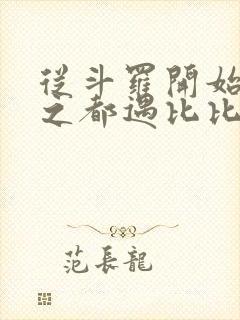 從斗羅開始
之都遇比比
范長龍